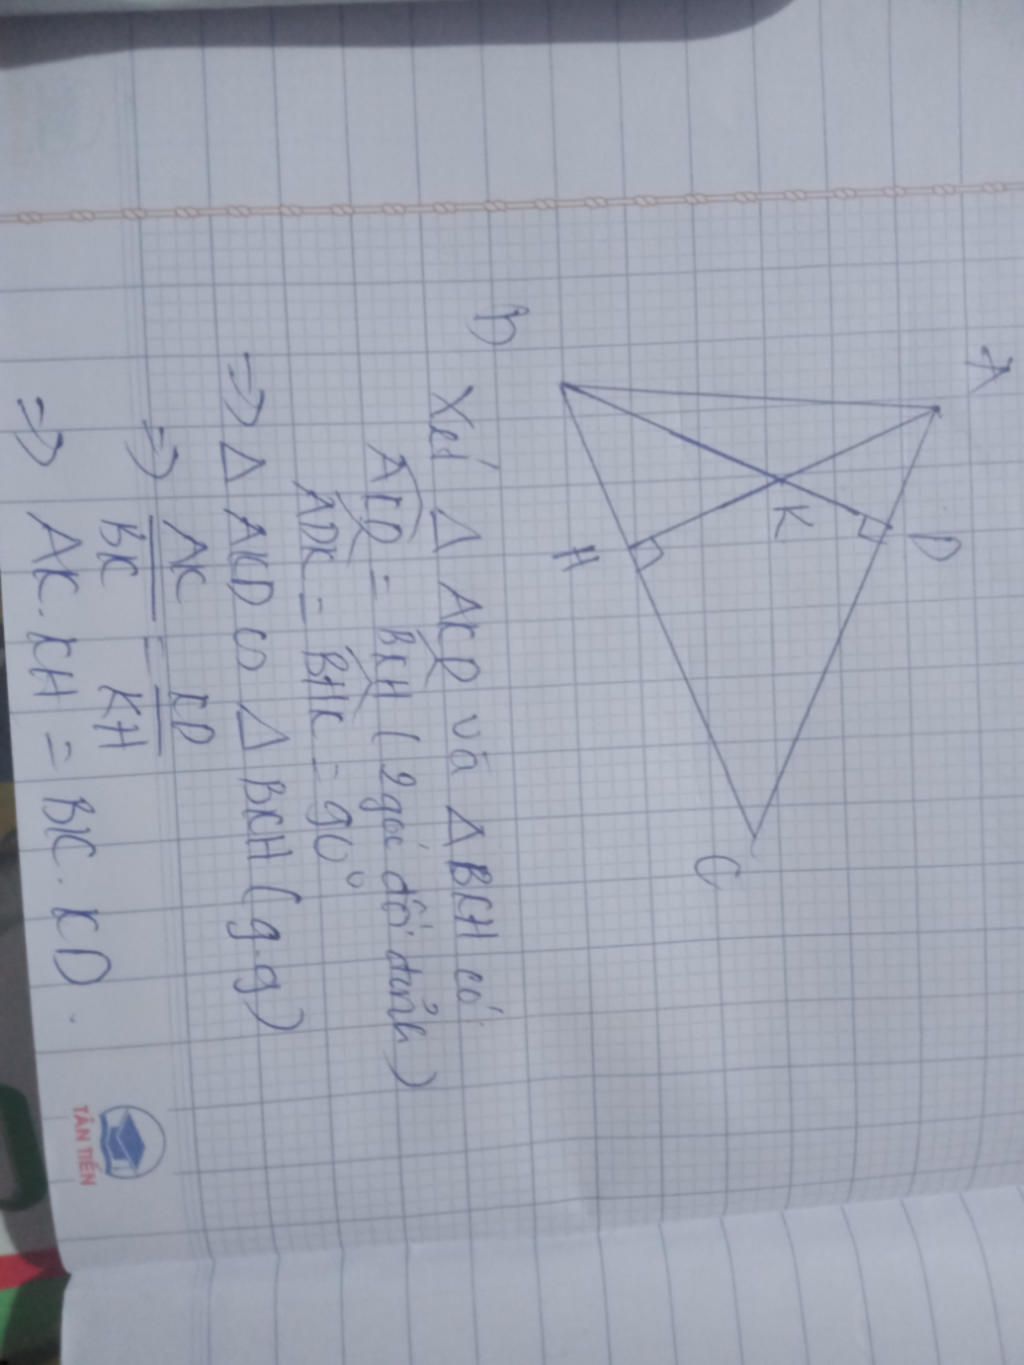 A
D
K
B
H
C
Xét Δ AKD và Δ BKH có
AKD = BKH (2 góc đối đỉnh)
ADK = BHK = 90°
⇒ Δ AKD ∽ Δ BKH (g.g)
⇒ AK/BK = KD/KH
⇒ AK.KH = BK.KD.
TÂN TIẾN